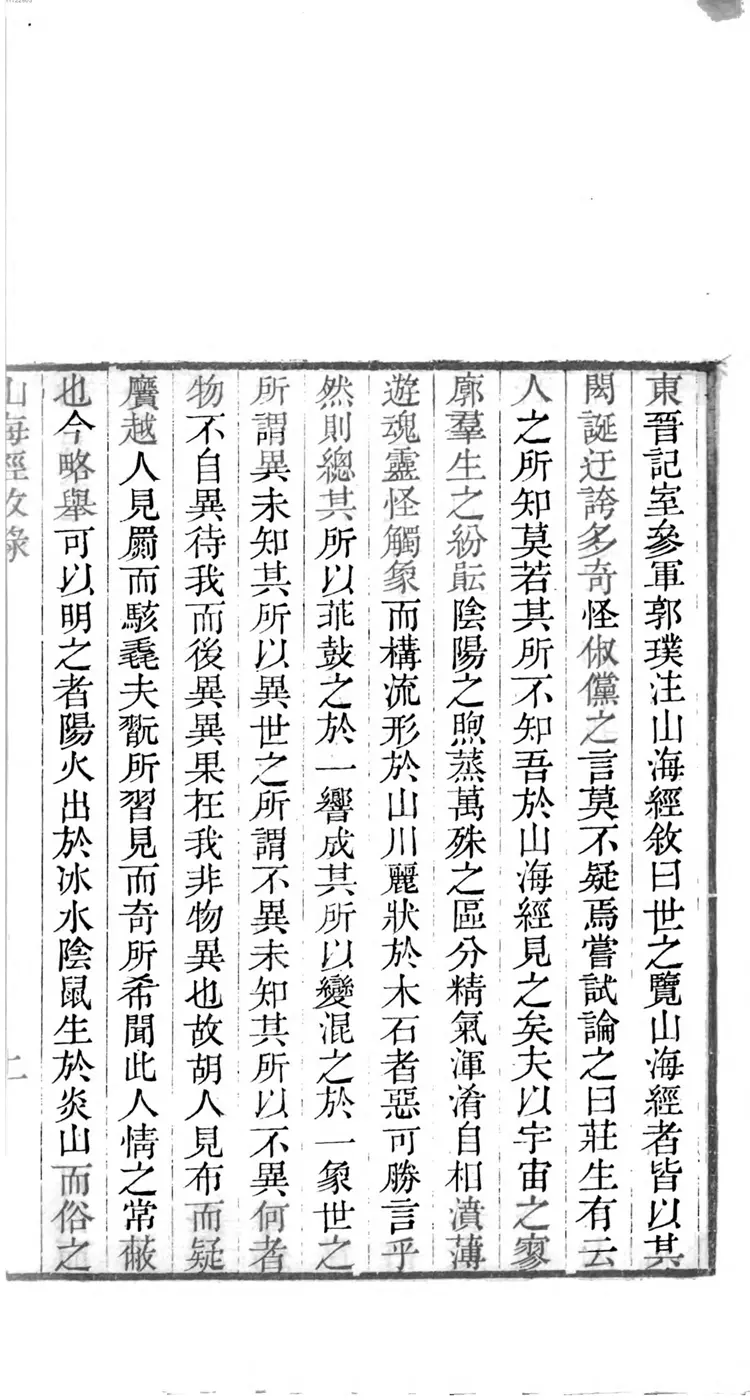 東晉記室參軍郭璞注山海經敘曰世之覽山海經者皆以其
閎誕迂誇多奇怪俶儻之言莫不疑焉嘗試論之曰莊生有云
人之所知莫若其所不知吾於山海經見之矣夫以宇宙之寥
廓羣生之紛紜陰陽之煦蒸萬殊之區分精氣渾淆自相濆薄
遊魂靈怪觸象而構流形於山川麗狀於木石者惡可勝言乎
然則總其所以乖鼓之於一響成其所以變混之於一象世之
所謂異未知其所以異世之所謂不異未知其所以不異何者
物不自異待我而後異異果在我非物異也故胡人見布而疑
黂越人見罽而駭毳夫翫所習見而奇所希聞此人情之常蔽
也今略舉可以明之者陽火出於冰水陰鼠生於炎山而俗之
山海經敘錄